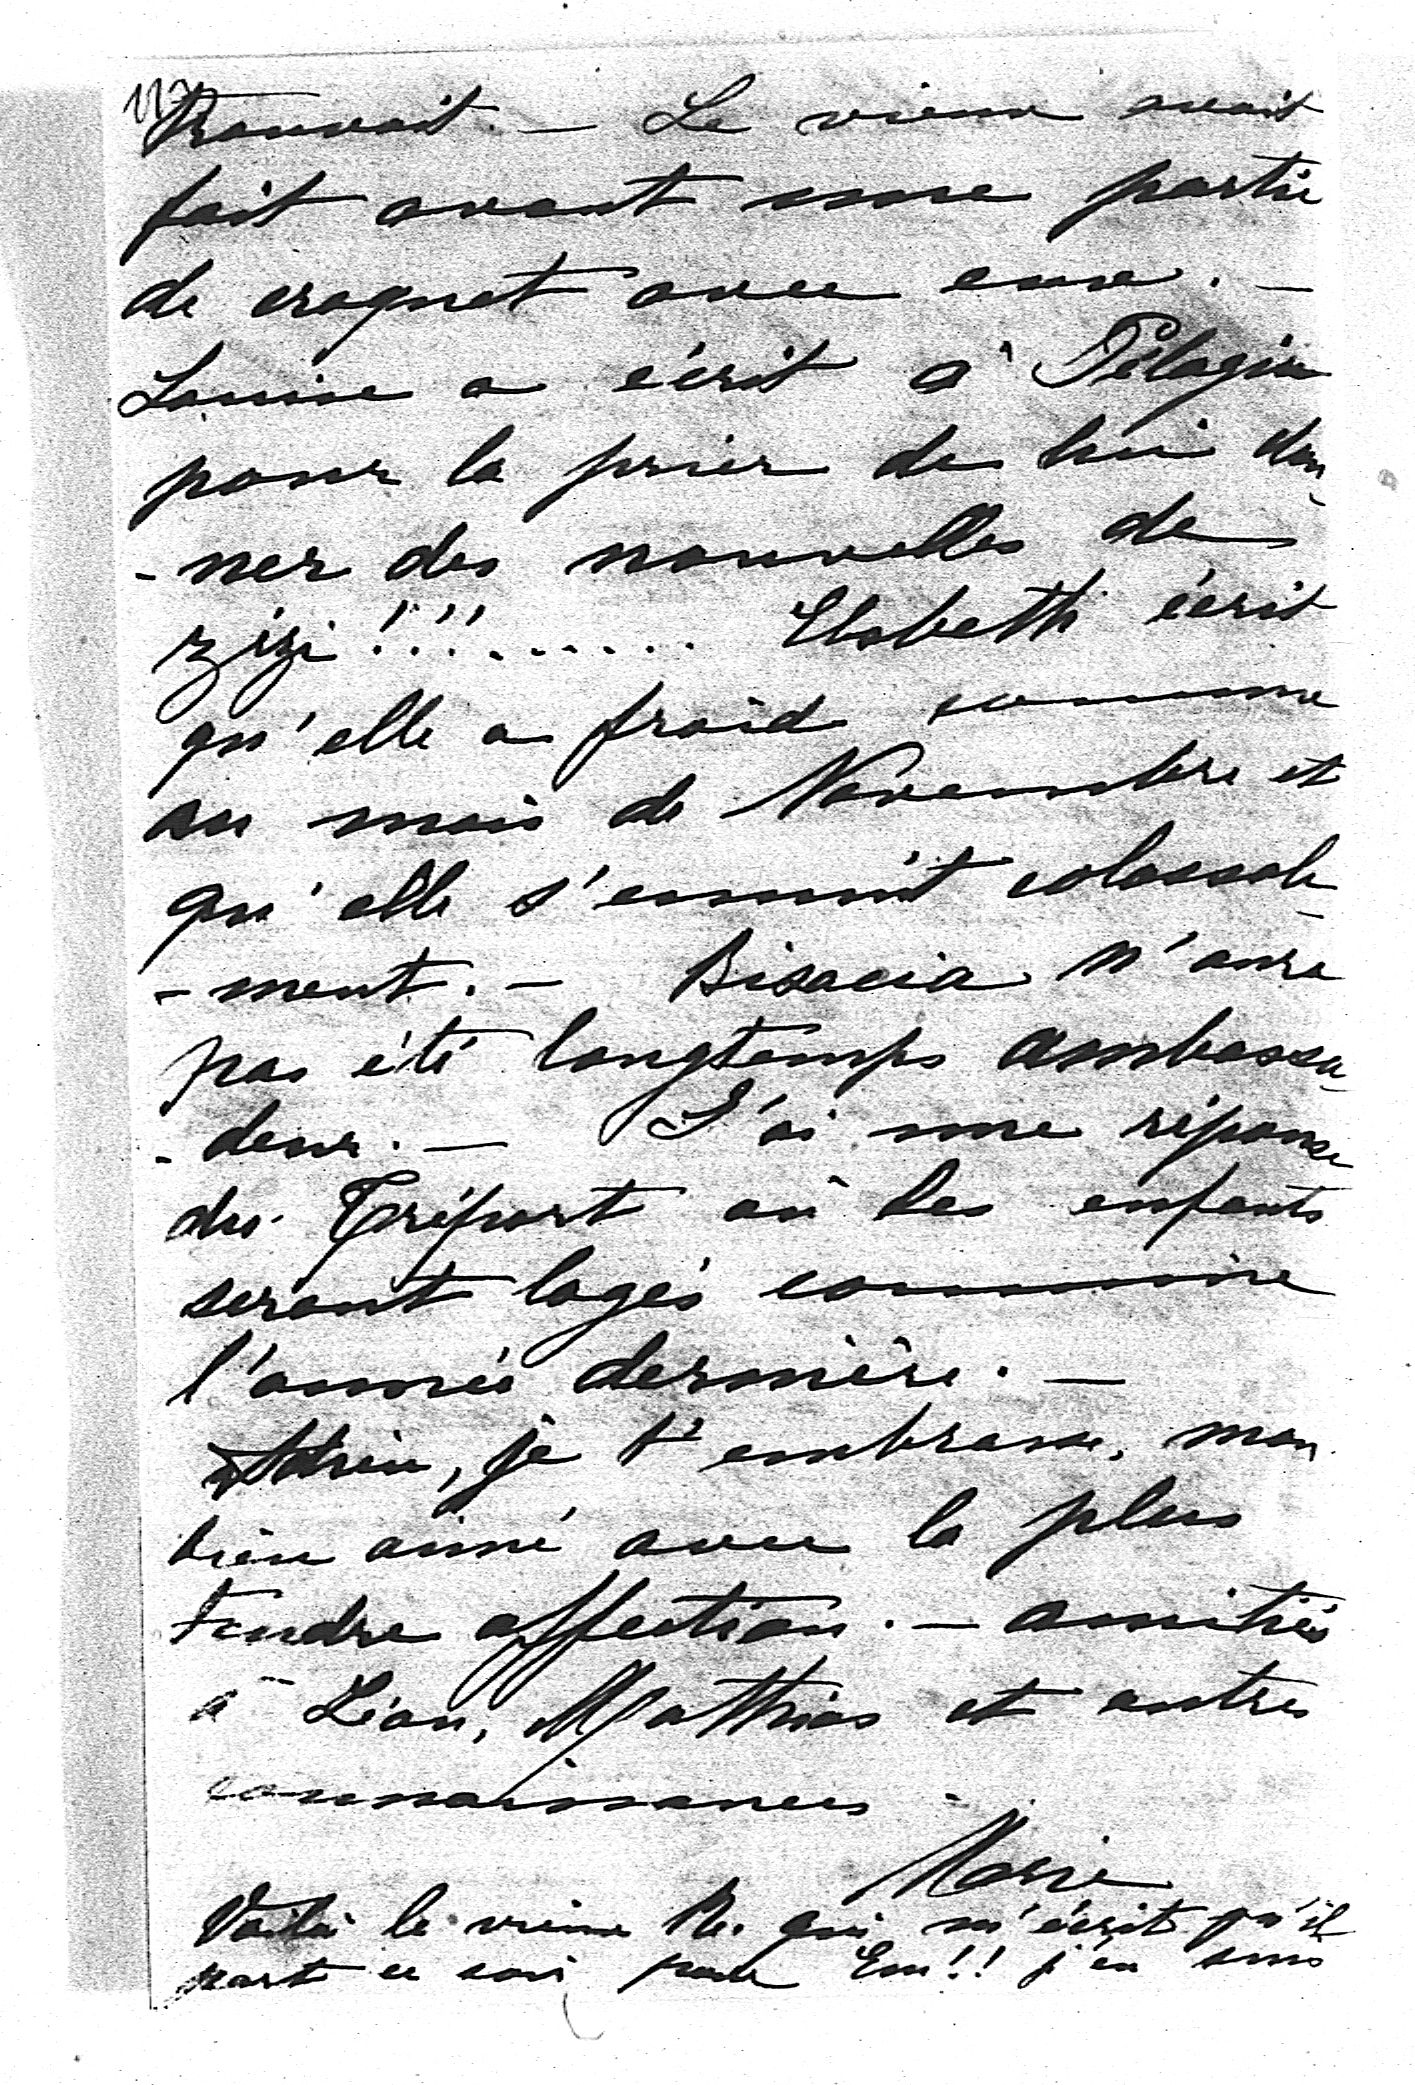 trouvait. — Le vieux avait
fait avant une partie
de croquet avec eux. —
Louise a écrit à Pélagie
pour la prier de lui don
- ner des nouvelles de
zizi!!!......... Elsabeth écrit
qu'elle a froid comme
au mois de Novembre et
qu'elle s'ennuit colossale
- ment. — Bisacia n'aura
pas été longtemps ambassa
- deur. — J'ai une réponse
du Tréport où les enfants
seront logés comme
l'année dernière. —
Adieu, je t'embrasse, mon
bien aimé avec la plus
tendre affection. — amitiés
à Léon, Mathias et autres
connaissances.
Marie
Voilà le vieux R. qui m'écrit qu'il
part ce soir pour Em!! j'en suis